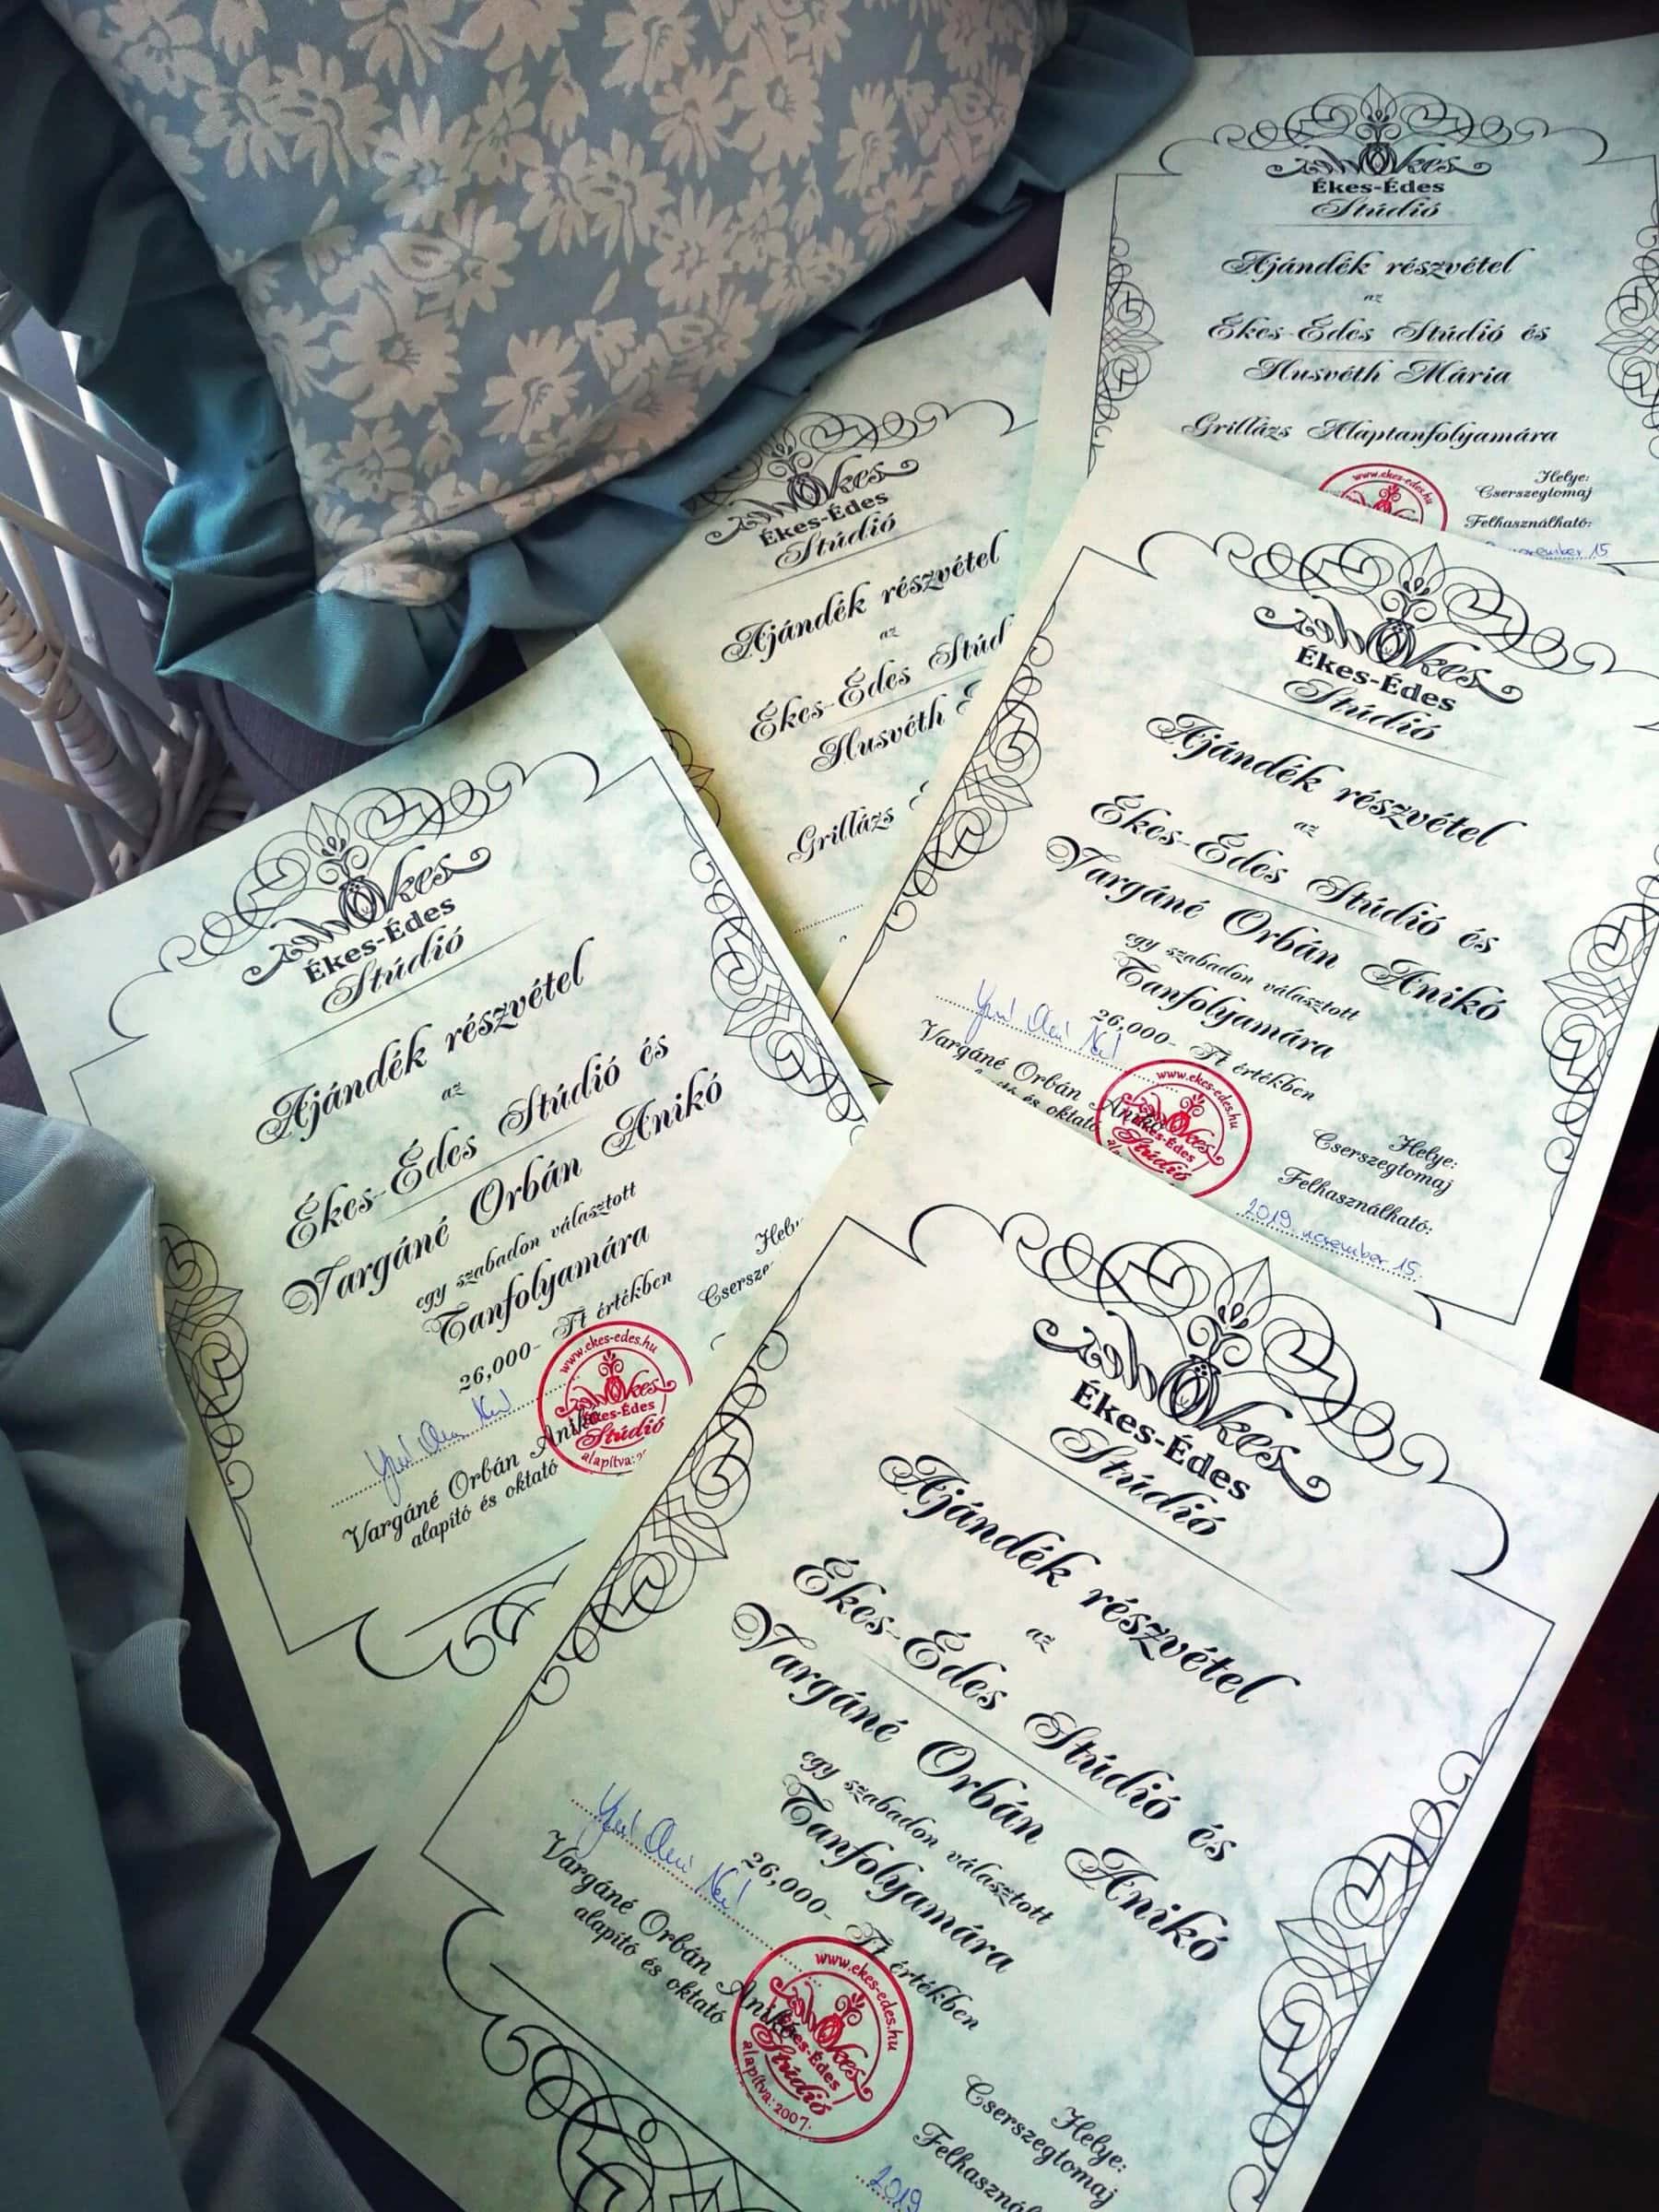 Ékes-Édes
Stúdió
Ajándék részvétel
az
Ékes-Édes Stúdió és
Husvéth Mária
Grillázs Alaptanfolyamára
www.ekes-edes.hu
Helye:
Cserszegtomaj
Felhasználható:
november 15
Ékes-Édes
Stúdió
Ajándék részvétel
az
Ékes-Édes Stúd
Husvéth
Grillázs
Ékes-Édes
Stúdió
Ajándék részvétel
az
Ékes-Édes Stúdió és
Vargáné Orbán Anikó
egy szabadon választott
Tanfolyamára
26,000- Ft értékben
Vargáné Orbán Anikó
és oktató
www.ekes-edes.hu
Ékes-Édes
Stúdió
Helye:
Cserszegtomaj
Felhasználható:
2019. november 15.
Ékes-Édes
Stúdió
Ajándék részvétel
az
Ékes-Édes Stúdió és
Vargáné Orbán Anikó
egy szabadon választott
Tanfolyamára
26,000- Ft értékben
Vargáné Orbán Anikó
alapító és oktató
www.ekes-edes.hu
Ékes-Édes
Stúdió
alapítva:
Hely
Cserszeg
Ékes-Édes
Stúdió
Ajándék részvétel
az
Ékes-Édes Stúdió és
Vargáné Orbán Anikó
egy szabadon választott
Tanfolyamára
26,000- Ft értékben
Vargáné Orbán Anikó
alapító és oktató
www.ekes-edes.hu
Ékes-Édes
Stúdió
alapítva: 2007.
Helye:
Cserszegtomaj
Felhasznál
2019